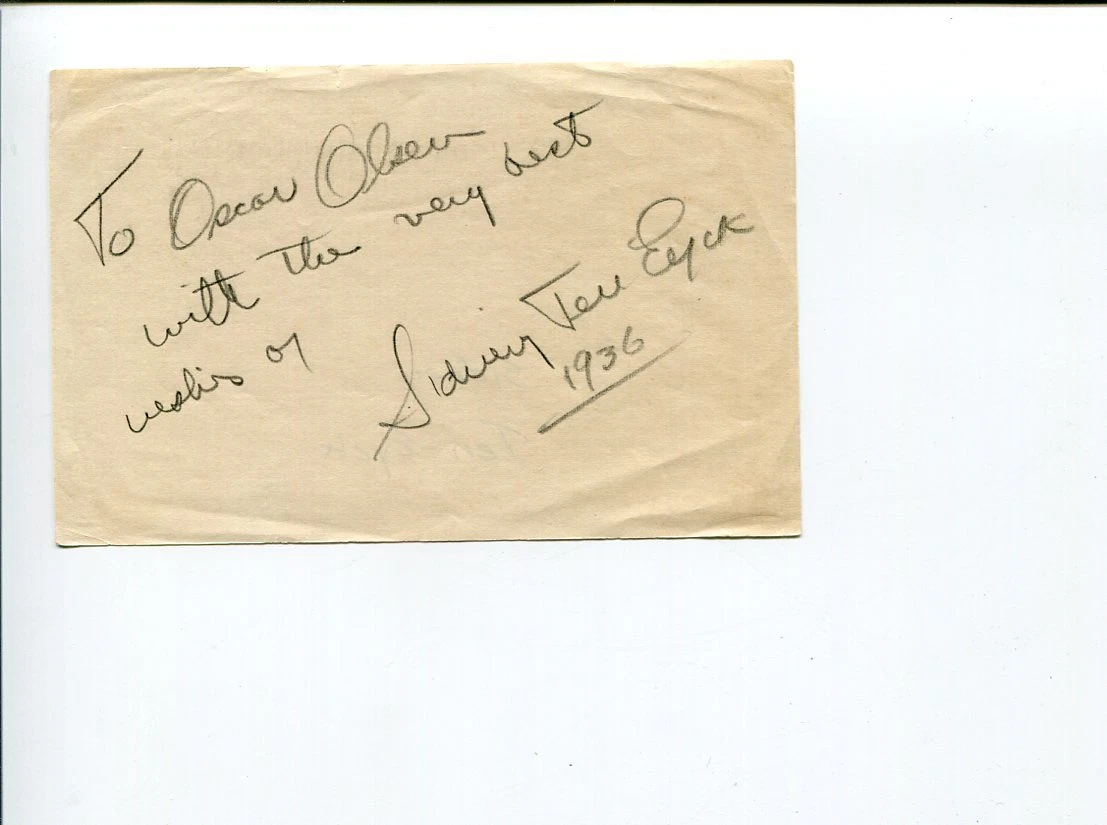 To Oscar Olsen
with the very best
wishes of
Sidney Ten Eyck
1936